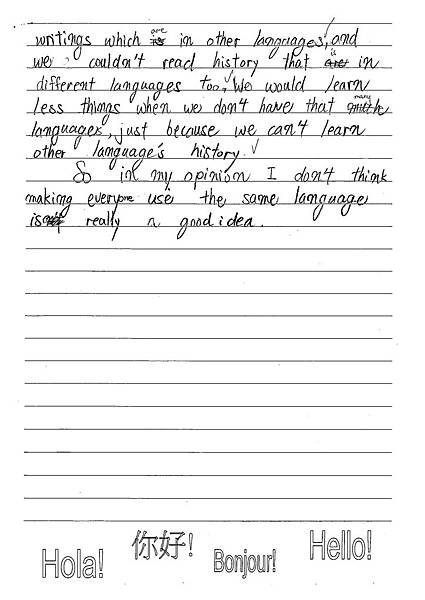 writings which are in other languages, and
we couldn't read history that is in
different languages too. We would learn
less things when we don't have that many
languages, just because we can't learn
other language's history.
So in my opinion I don't think
making everyone use the same language
is really a good idea.
Hola! 你好! Bonjour! Hello!